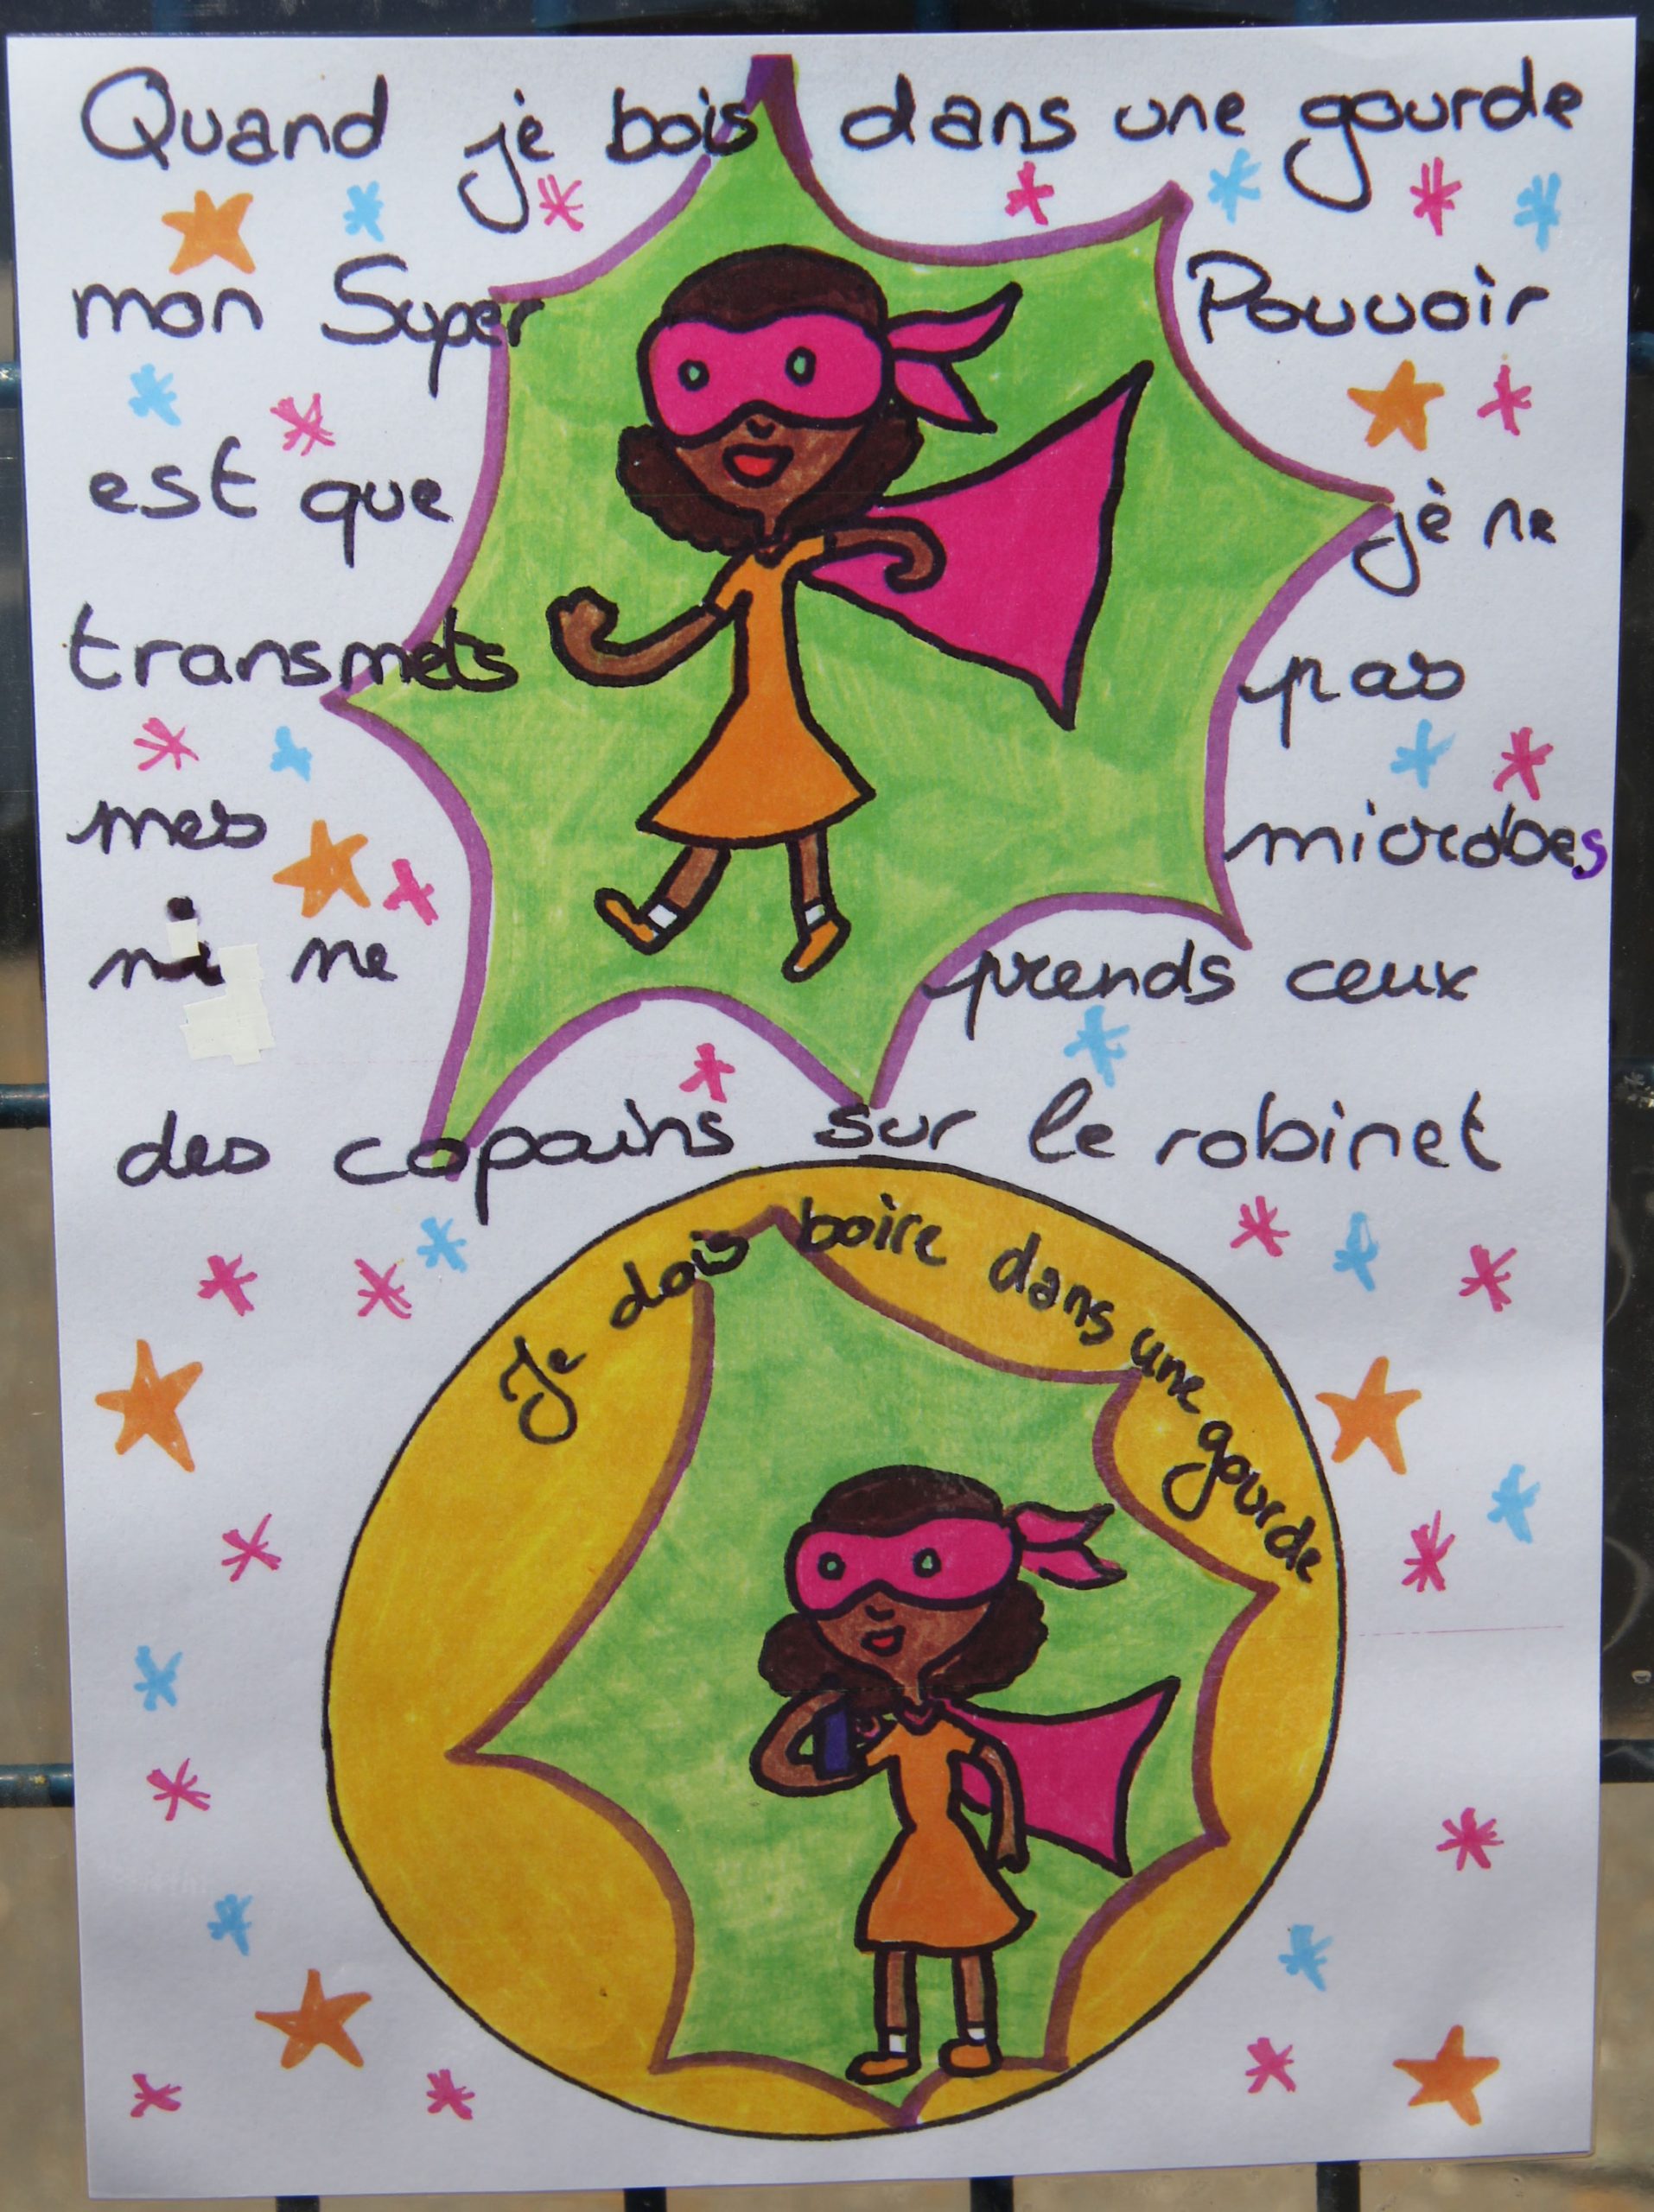 Quand je bois dans une gourde
mon Super Pouvoir
est que je ne
transmets pas
mes microbes
ni ne prends ceux
des copains sur le robinet
Je dois boire dans une gourde